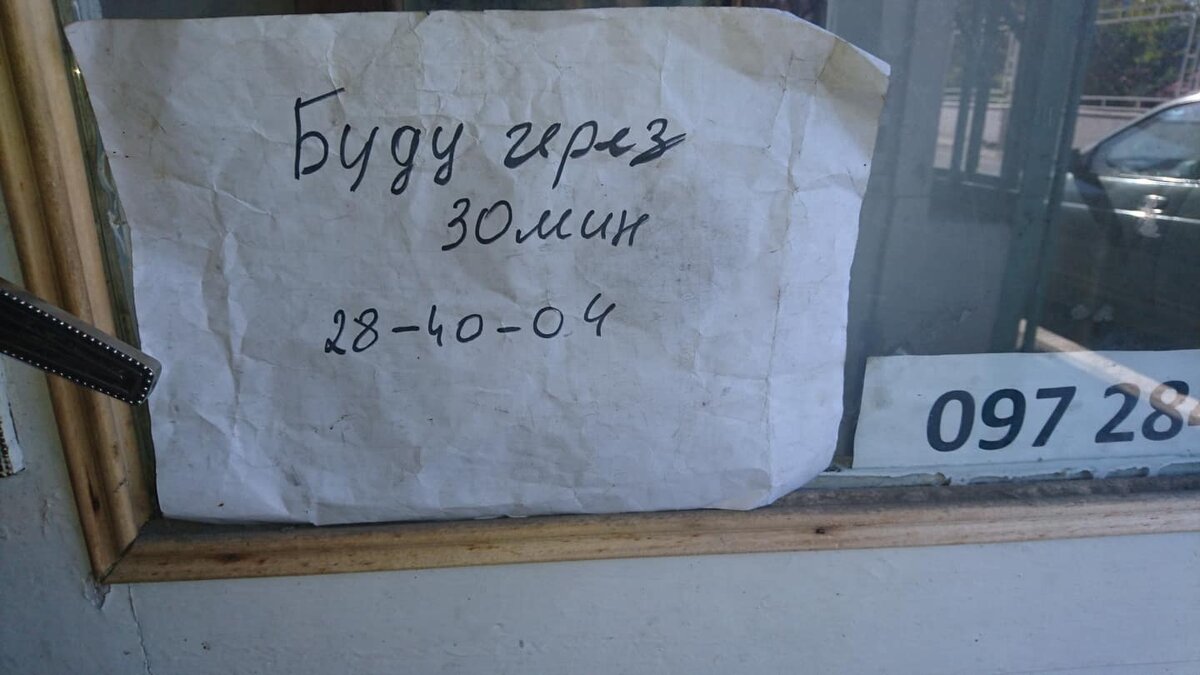 Буду через
30мин
28-40-04
097 28